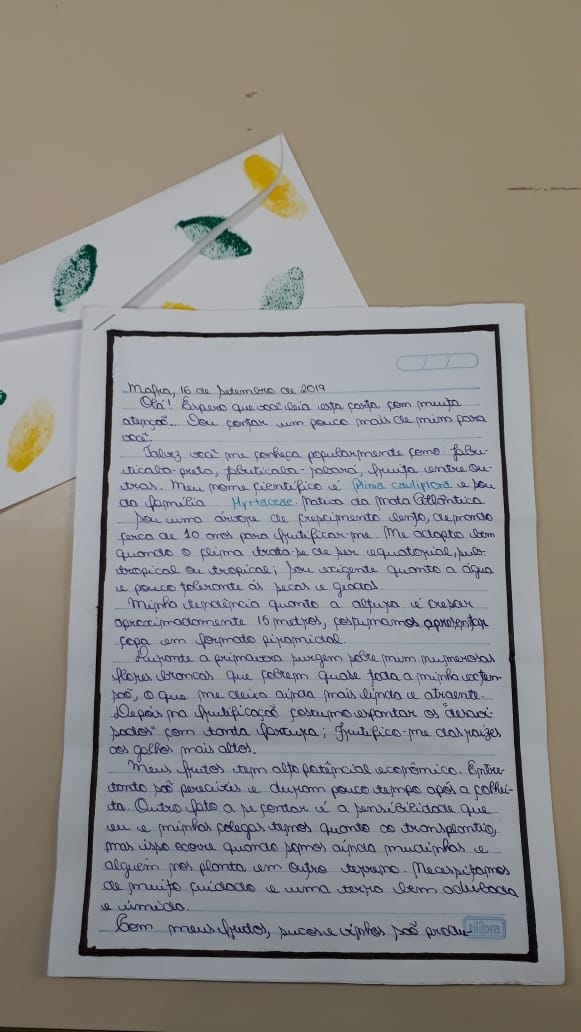 Mafra, 16 de setembro de 2019
Olá! Espero que você leia esta carta com muita
atenção... Vou contar um pouco mais de mim para
você.
Talvez você me conheça popularmente como: jabu-
ticaba-preta, jabuticaba-sabará, fruita entre ou-
tras. Meu nome científico é Plinia cauliflora e sou
da família Myrtaceae. Nativa da Mata Atlântica.
Sou uma árvore de crescimento lento, demando
cerca de 10 anos para frutificar-me. Me adapto bem
quando o clima trata-se de ser equatorial, sub-
tropical ou tropical; sou exigente quanto a água
e pouco tolerante ás secas e geadas.
Minha tendência quanto a altura é crescer
aproximadamente 15 metros, costumamos apresentar
copa em formato piramidal.
Durante a primavera surgem sobre mim numerosas
flores brancas que cobrem quase toda a minha exten-
são, o que me deixa ainda mais linda e atraente.
Depois na frutificação costumo espantar os "desavi-
sados" com tanta fartura; frutifico-me das raízes
aos galhos mais altos.
Meus frutos tem alto potêncial econômico. Entre-
tanto são perecíveis e duram pouco tempo após a colhei-
ta. Outro fato a se contar é a sensibilidade que
eu e minhas colegas temos quanto ao transplantio,
mas isso ocorre quando somos ainda mudinhas e
alguém nos planta em outro terreno. Necessitamos
de muito cuidado e uma terra bem adubada
e úmida.
Com meus frutos, sucos e vinhos são produ-
tilibra